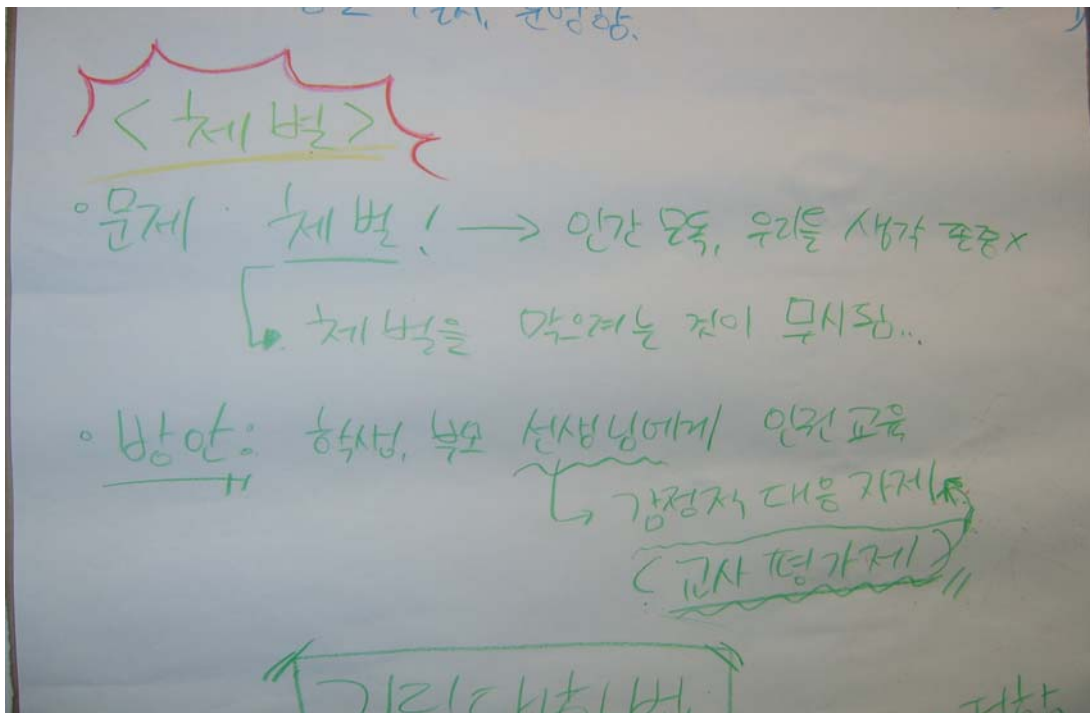 <체벌>
◦문제 · 체벌! → 인간 모독, 우리를 생각 존중 x
↳ 체벌을 막으려는 것이 무시됨...
◦방안: 학생, 부모 선생님에게 인권교육
↳ 감정적 대응 자제
(교사 평가제)